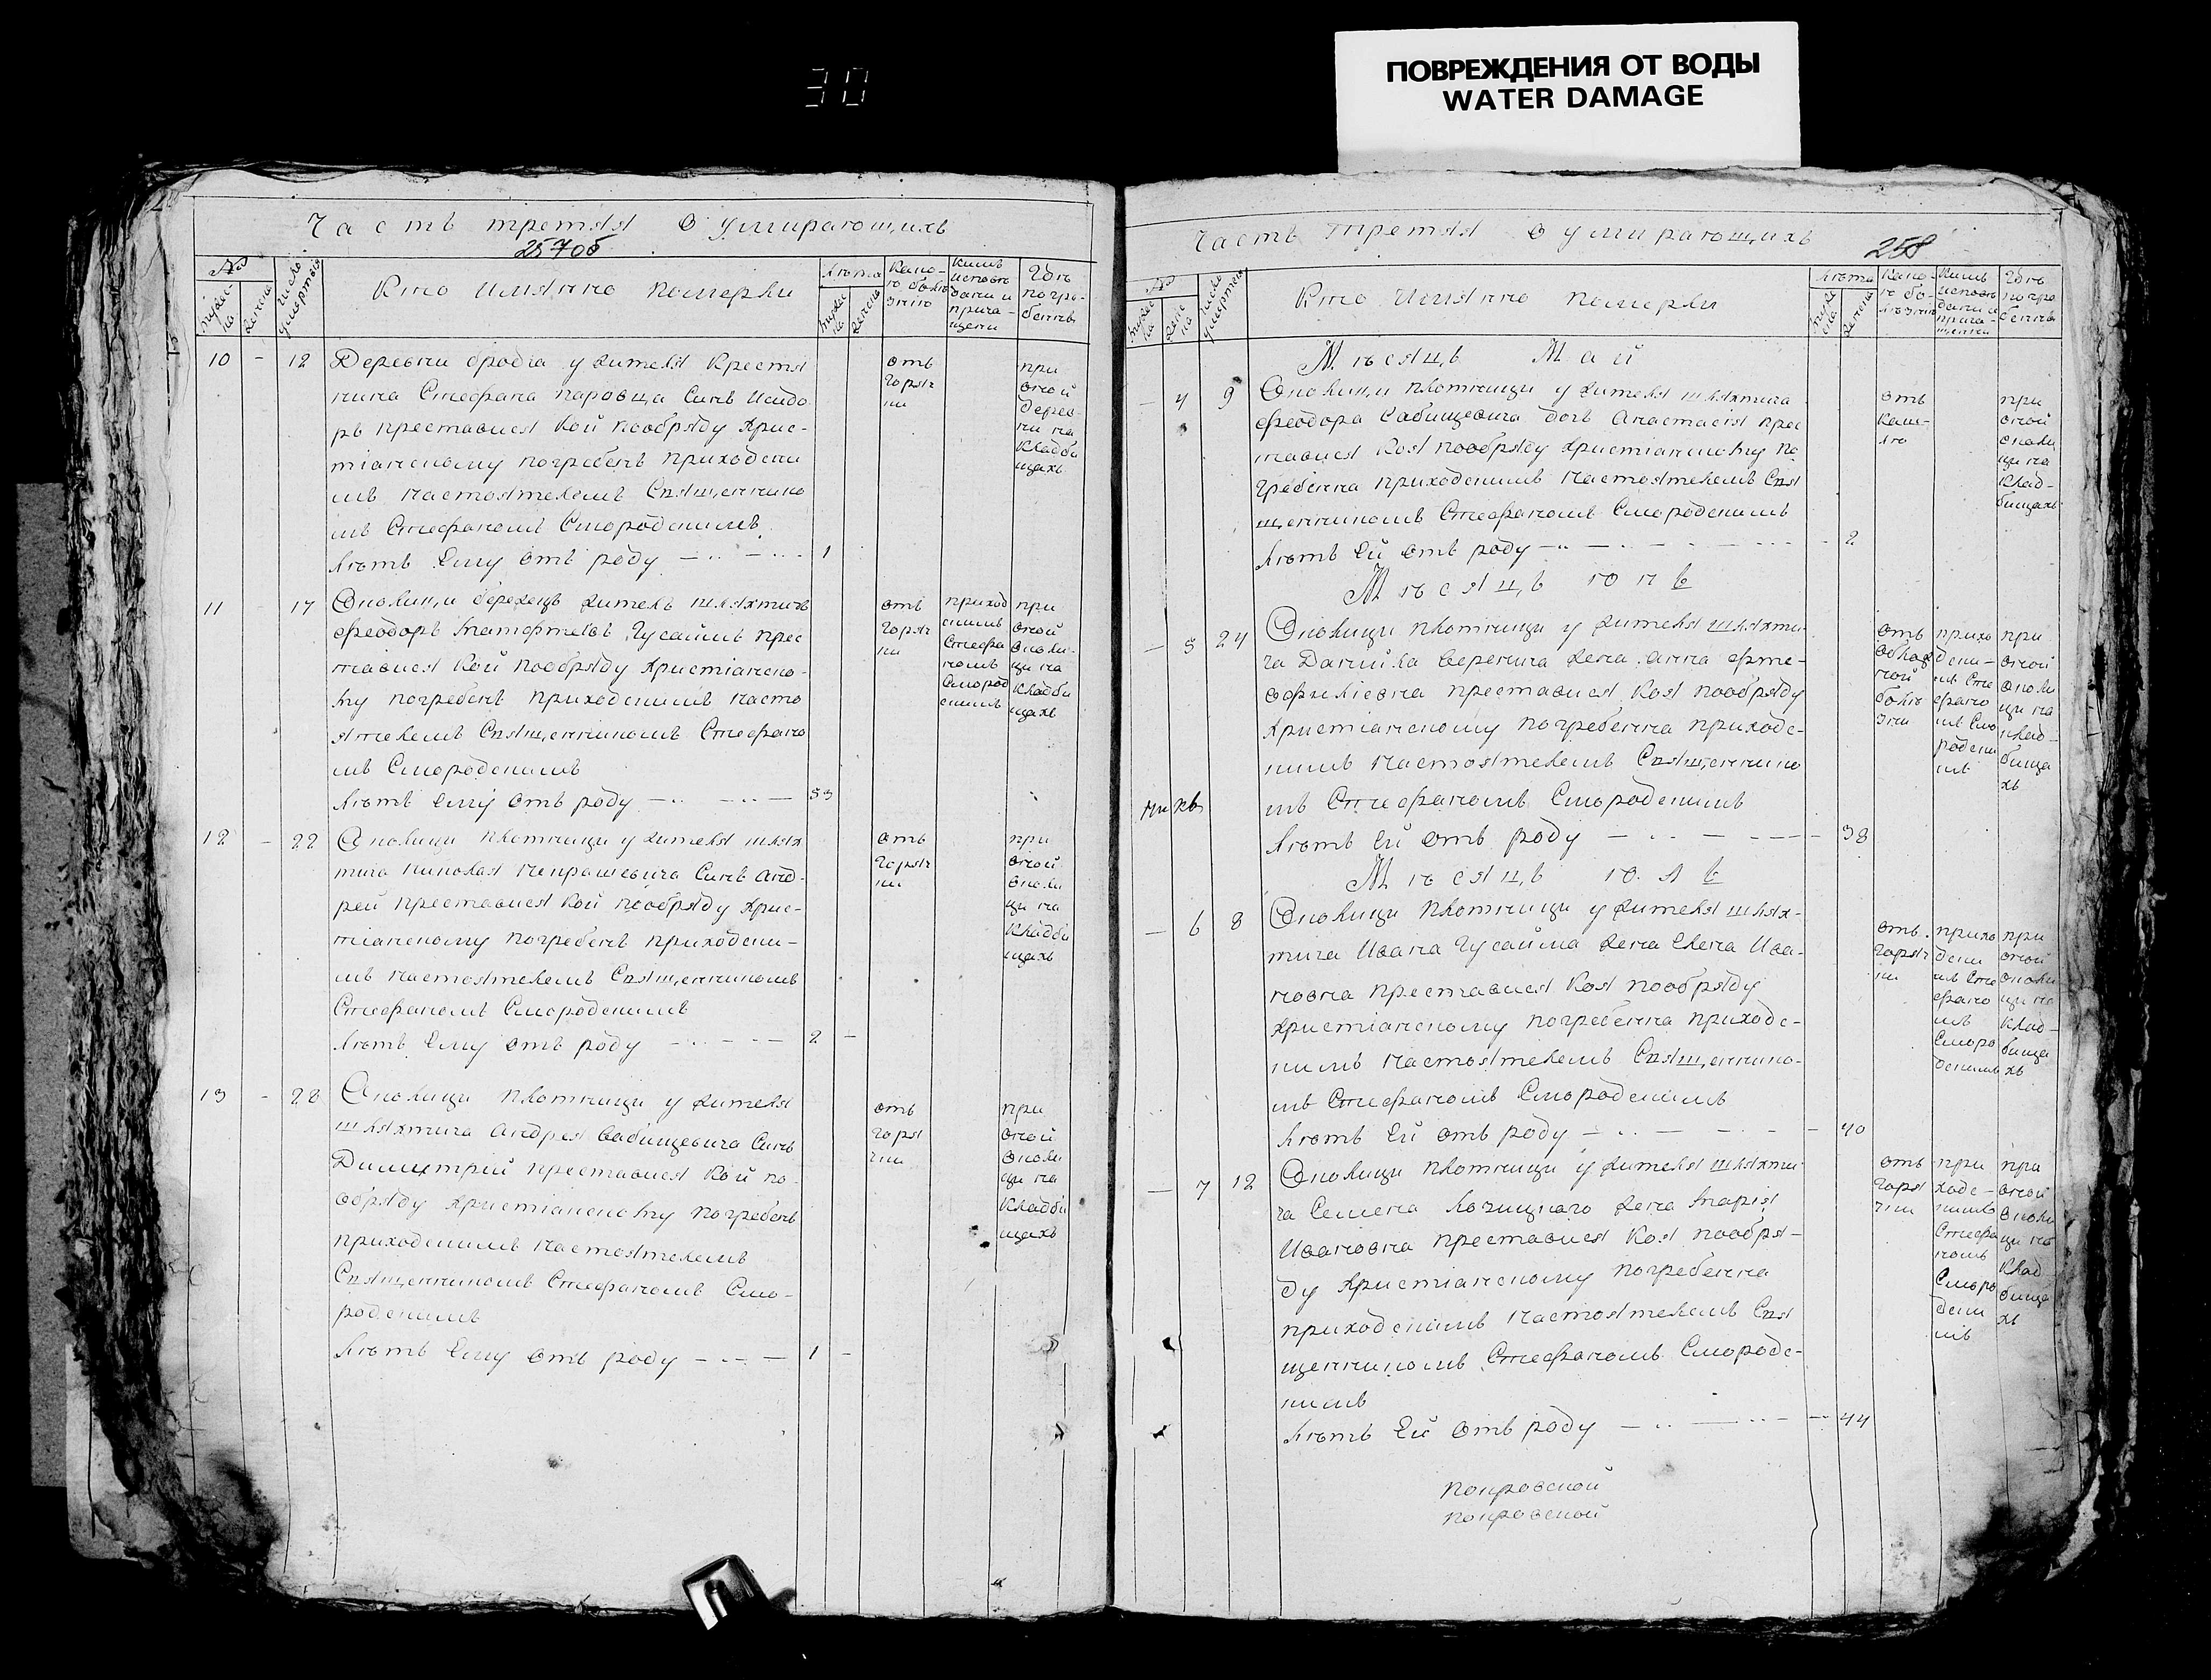 30
ПОВРЕЖДЕНИЯ ОТ ВОДЫ
WATER DAMAGE
Часть третяя О умирающихъ
257об
№
Число умертвія
Кто имянно померли
Лѣта
Какою болезнію
Кимъ исповеданы и причащены
Гдѣ погребенны
10 - 12 Деревни бродча у жителя Крестя
нина Стефана паровца Синъ Исидо
ръ преставися кой пообряду Хрис-
тіанскому погребенъ приходски
мъ настоятелемъ Священнико
мъ Стефаномъ Смородскимъ
Лѣтъ Ему отъ роду 1
отъ горячки
при оной деревни на кладбищахъ
11 17 Околицы бережецъ житель шляхтичъ
Феодоръ Матфтевъ Гусаимъ прес
тавися кой пообряду Христіанско-
му погребенъ приходскимъ насто
ятелемъ Священникомъ Стефано
мъ Смородскимъ
Лѣтъ ему отъ роду 53
отъ горячки
приходскимъ Стефаномъ Смородскимъ
при оной околицы на кладбищахъ
12 - 22 Околицы плотницы у жителя шлях
тича Николая Некрашевича Синъ Анд-
рей преставися кой пообряду Хрис-
тіанскому погребенъ приходски-
мъ настоятелемъ Священникомъ
Стефаномъ Смородскимъ
Лѣтъ Ему отъ роду 2 -
отъ горячки
при оной околицы на кладбищахъ
13 - 28 Околицы плотницы у жителя
шляхтича Андрея Сабищевича Синъ
Димитрій преставися кой по-
обряду Христіанскому погребенъ
приходскимъ настоятелемъ
Священникомъ Стефаномъ Смо-
родскимъ
Лѣтъ Ему отъ роду 1 -
отъ горячки
при оной околицы на кладбищахъ
Часть третяя О умирающихъ
258
№
Число умертвія
Кто имянно померли
Лѣта
Какою болѣзнію
Кимъ исповеданы и причащенны
Гдѣ погребенны
Мѣсяцъ Май
- 4 9 Околицы плотницы у жителя шляхтича
Феодора Сабищевича дочь Анастасія прес
тавися коя пообряду Христіанскому по
гребенна приходскимъ настоятелемъ Свя
щенникомъ Стефаномъ Смородскимъ
Лѣтъ Ей отъ роду - 2
отъ кашлю
при оной околицы на кладбищахъ
Мѣсяцъ юнь
- 5 24 Околицы плотницы у жителя шляхти-
ча Данийла Веренича жена Анна
преставися коя пообряду
Христіанскому погребенна приходс-
кимъ настоятелемъ Священнико
мъ Стефаномъ Смородскимъ
Лѣтъ Ей отъ роду - 38
приходскимъ Стефаномъ Смородскимъ
при оной околицы на кладбищахъ
Мѣсяцъ юль
- 6 8 Околицы плотницы у жителя шлях-
тича Ивана Гусайма жена Елена Ива-
новна преставися коя пообряду
Христіанскому погребенна приходс-
кимъ настоятелемъ Священнико-
мъ Стефаномъ Смородскимъ
Лѣтъ Ей отъ роду - 40
отъ горячки
приходскимъ Стефаномъ Смородскимъ
при оной околицы на кладбищахъ
- 7 12 Околицы плотницы у жителя шляхти-
ча Семена Лозицкаго жена Марія
Ивановна преставися коя пообря-
ду Христіанскому погребенна
приходскимъ настоятелемъ Свя
щенникомъ Стефаномъ Смородс-
кимъ
Лѣтъ Ей отъ роду - 44
отъ горячки
приходскимъ Стефаномъ Смородскимъ
при оной околицы на кладбищахъ
покровской
покровской